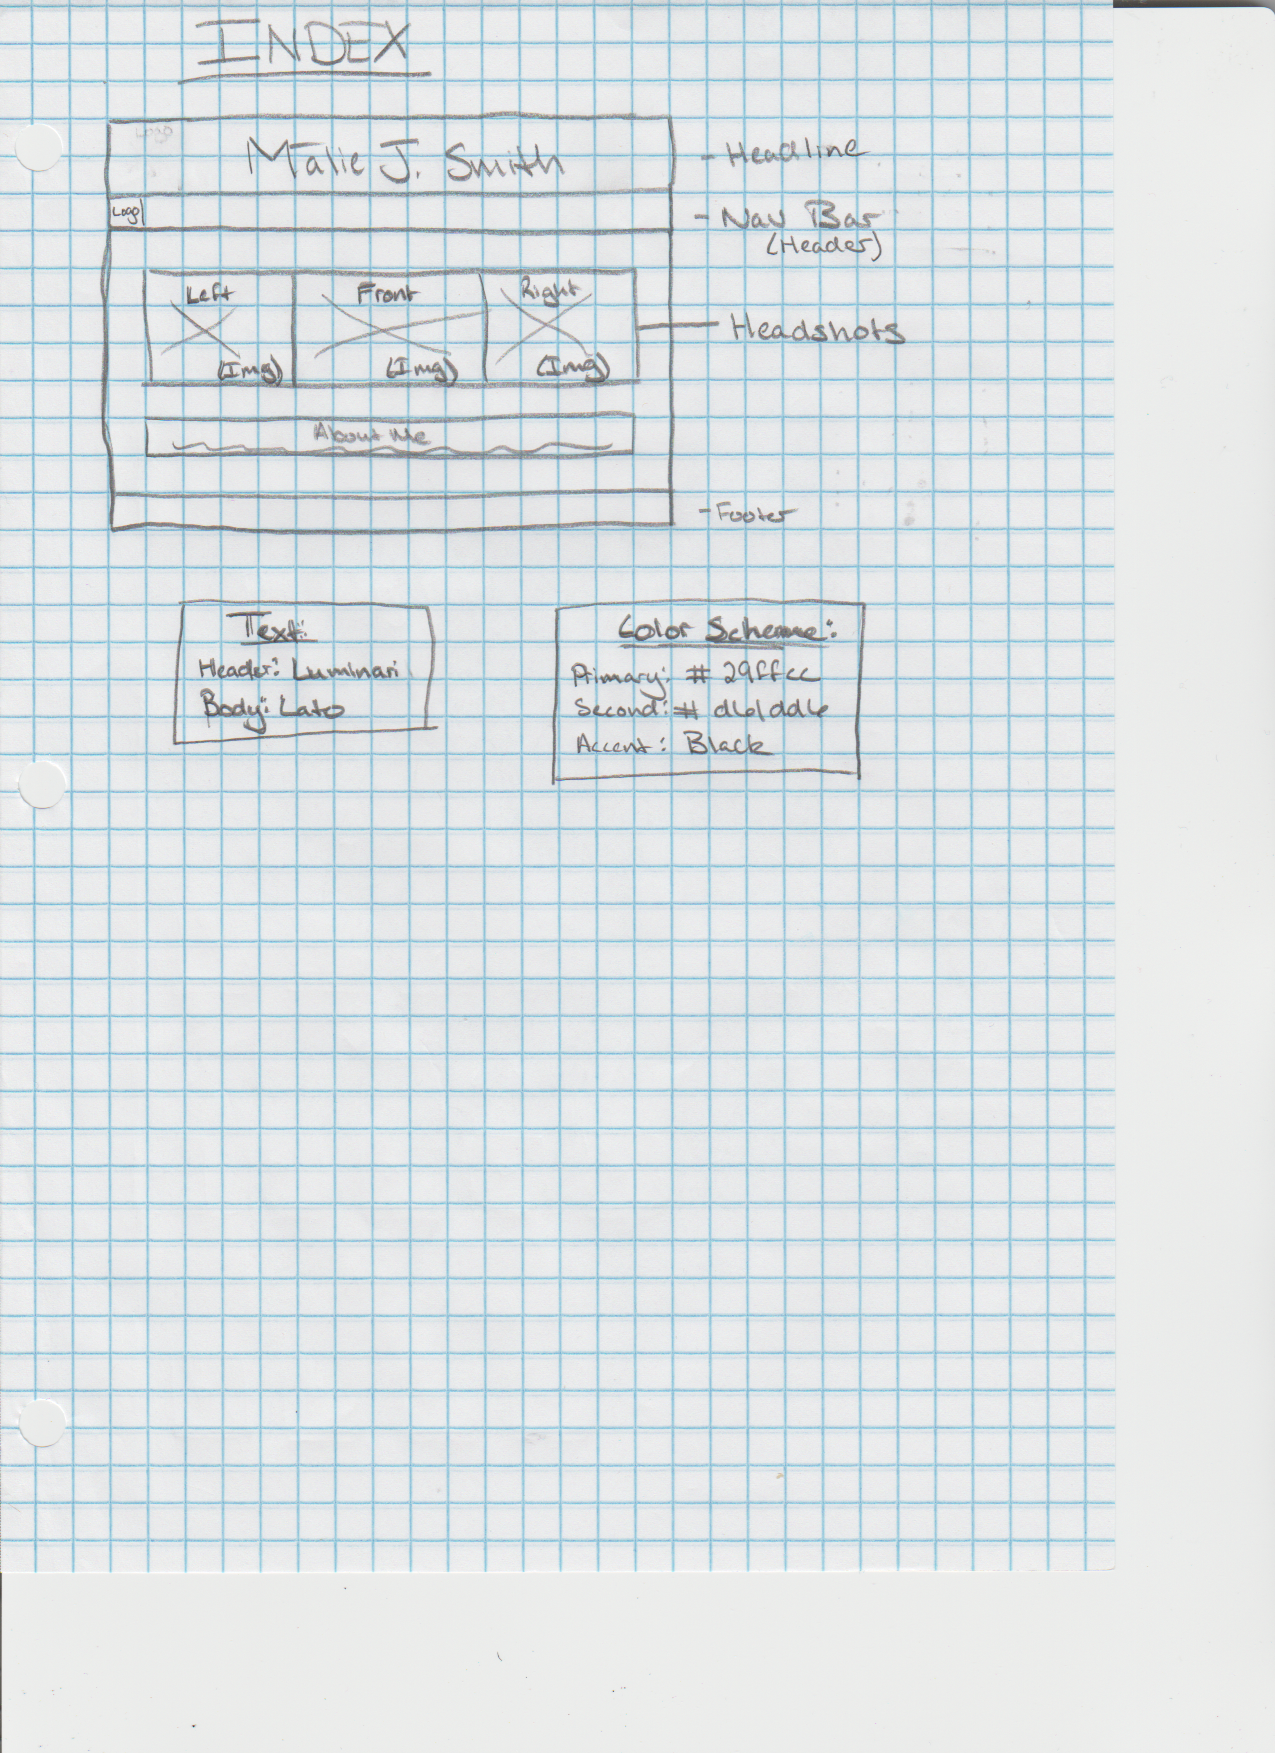 INDEX
Logo
Malie J. Smith
- Headline
Logo
- Nav Bar
(Header)
Left
Front
Right
(Img)
(Img)
(Img)
Headshots
About Me
- Footer
Text:
Header: Luminari
Body: Lato
Color Scheme:
Primary: # 29ffcc
Second: # d61dd6
Accent: Black